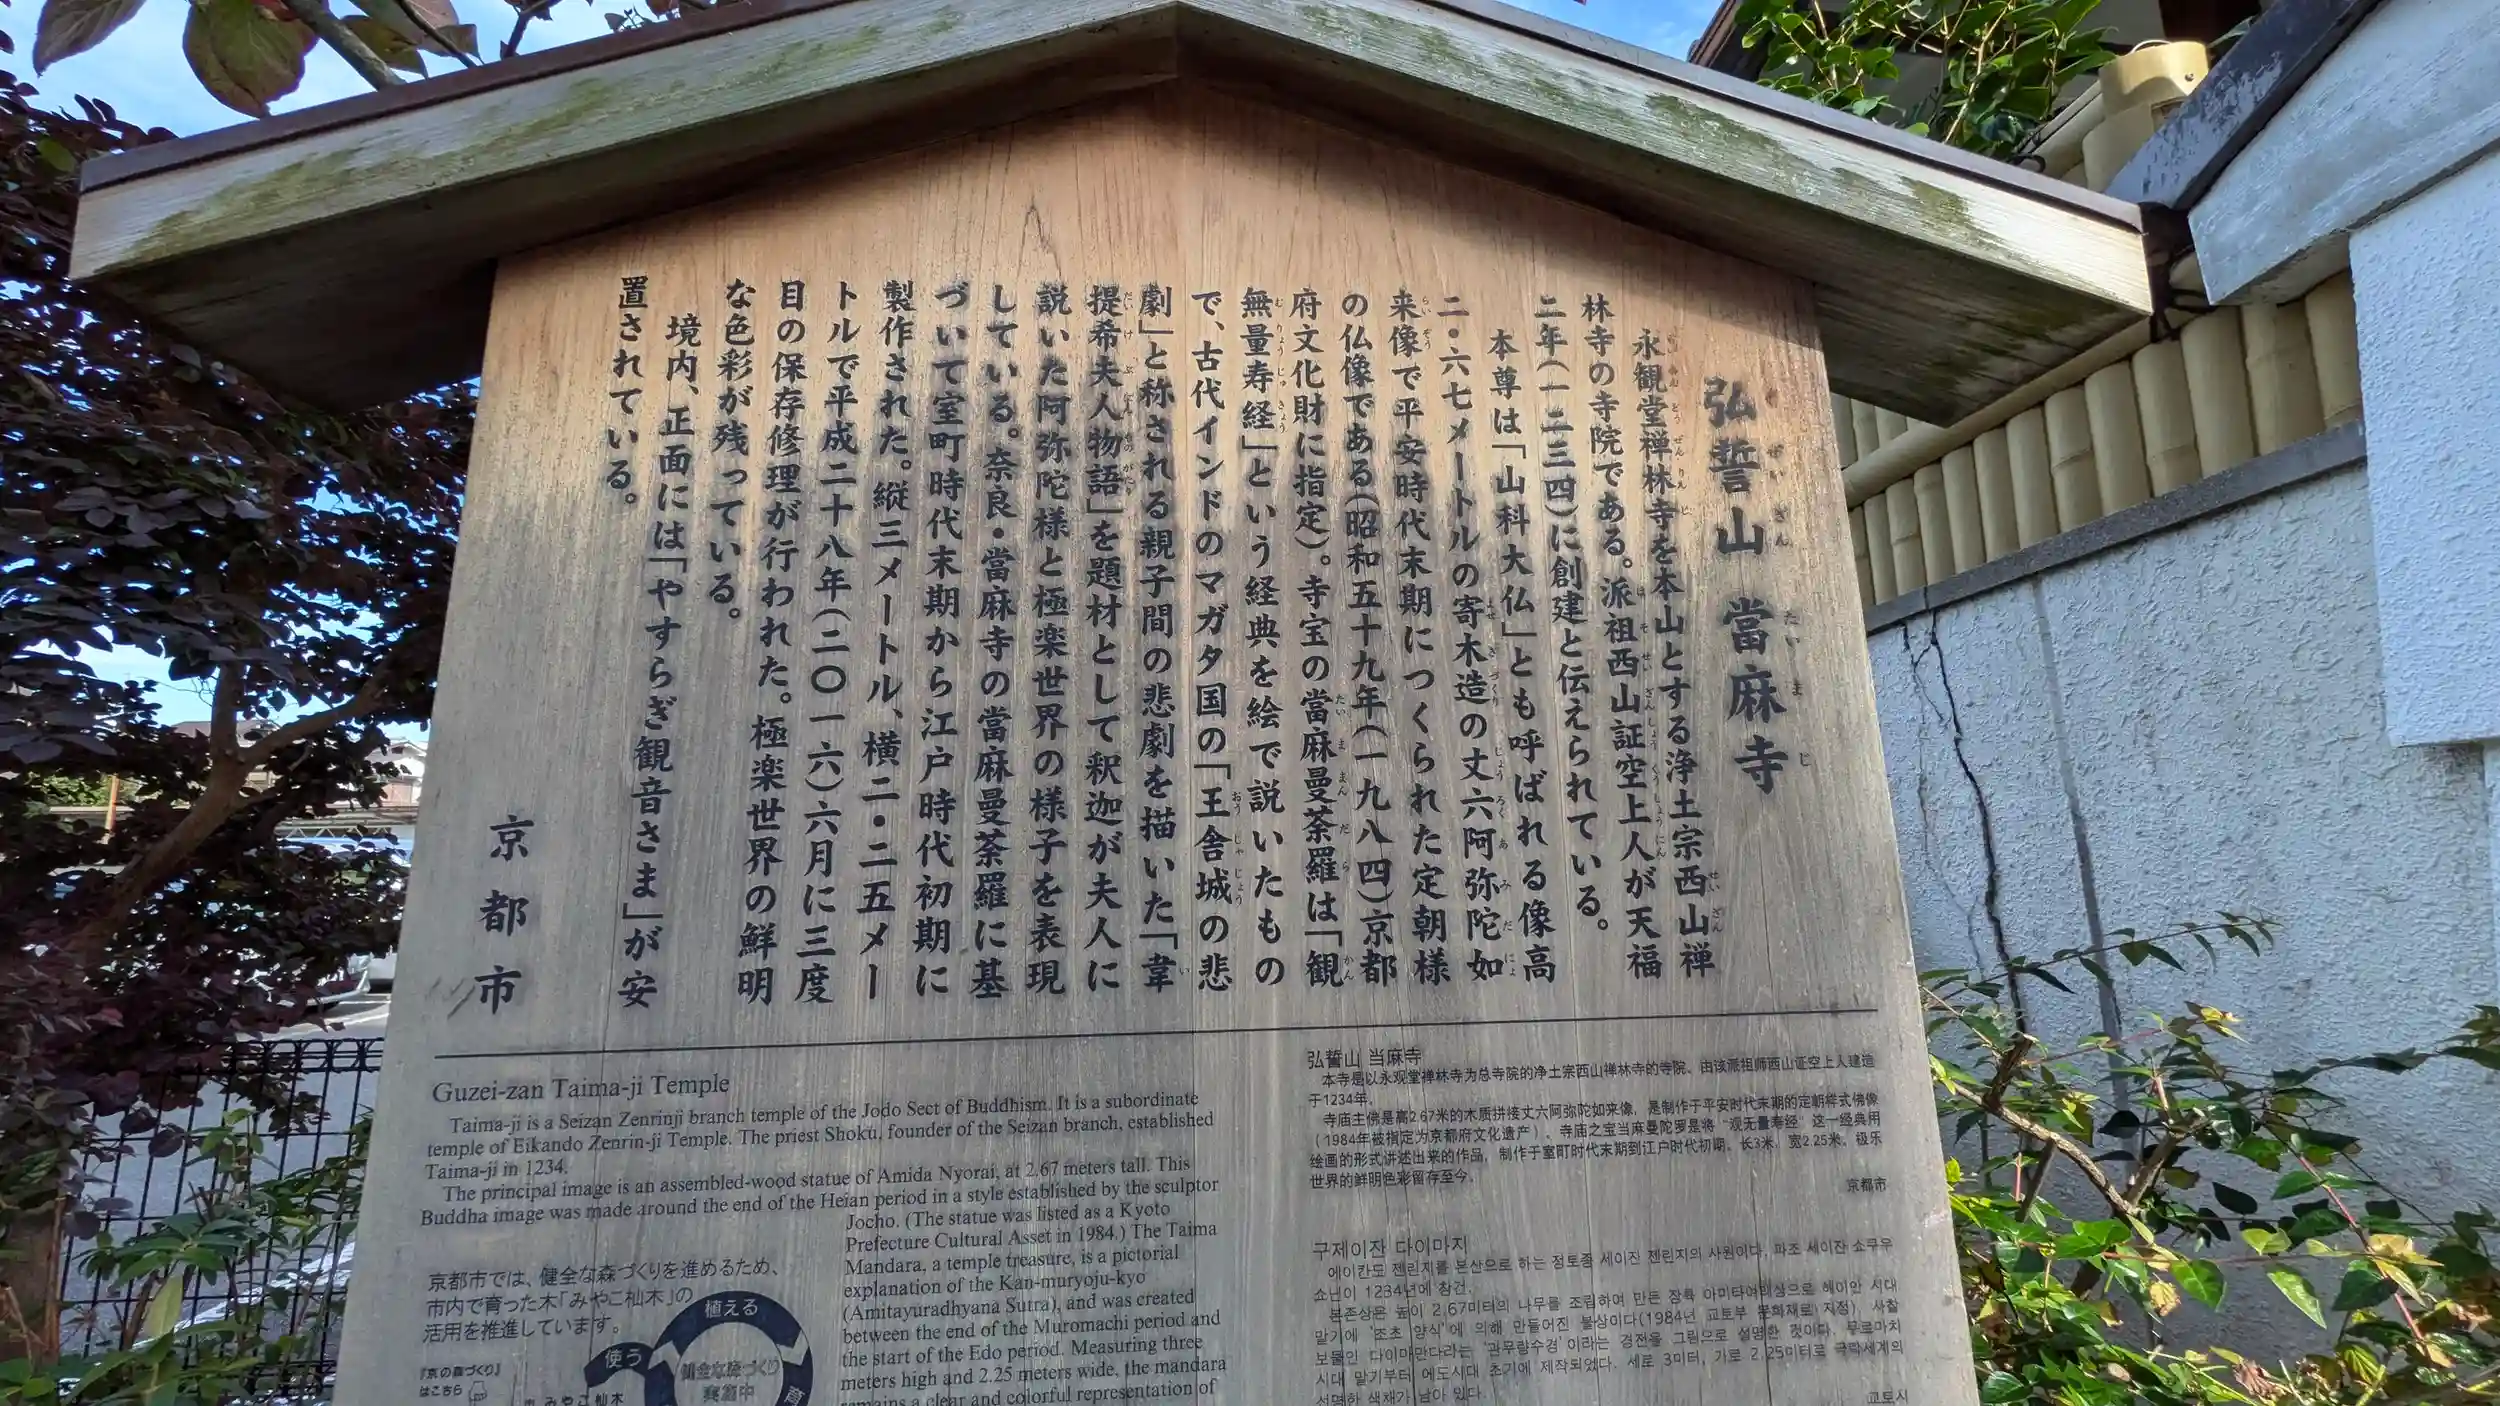 弘誓山 當麻寺
永観堂禅林寺を本山とする浄土宗西山禅
林寺の寺院である。派祖西山証空上人が天福
二年(一二三四)に創建と伝えられている。
本尊は「山科大仏」とも呼ばれる像高
二・六七メートルの寄木造の丈六阿弥陀如
来像で平安時代末期につくられた定朝様
の仏像である(昭和五十九年(一九八四)京都
府文化財に指定)。寺宝の當麻曼荼羅は「観
無量寿経」という経典を絵で説いたもの
で、古代インドのマガタ国の「王舎城の悲
劇」と称される親子間の悲劇を描いた「韋
提希夫人物語」を題材として釈迦が夫人に
説いた阿弥陀様と極楽世界の様子を表現
している。奈良・當麻寺の當麻曼荼羅に基
づいて室町時代末期から江戸時代初期に
製作された。縦三メートル、横二・二五メー
トルで平成二十八年(二〇一六)六月に三度
目の保存修理が行われた。極楽世界の鮮明
な色彩が残っている。
境内、正面には「やすらぎ観音さま」が安
置されている。
京都市
Guzei-zan Taima-ji Temple
Taima-ji is a Seizan Zenrinji branch temple of the Jodo Sect of Buddhism. It is a subordinate
temple of Eikando Zenrin-ji Temple. The priest Shoku, founder of the Seizan branch, established
Taima-ji in 1234.
The principal image is an assembled-wood statue of Amida Nyorai, at 2.67 meters tall. This
Buddha image was made around the end of the Heian period in a style established by the sculptor
Jocho. (The statue was listed as a Kyoto
Prefecture Cultural Asset in 1984.) The Taima
Mandara, a temple treasure, is a pictorial
explanation of the Kan-muryoju-kyo
(Amitayuradhyana Sutra), and was created
between the end of the Muromachi period and
the start of the Edo period. Measuring three
meters high and 2.25 meters wide, the mandara
remains a clear and colorful representation of
京都市では、健全な森づくりを進めるため、
市内で育った木「みやこ杣木」の
活用を推進しています。
植える
使う
健全な森づくり
実施中
『京の森づくり』
はこちら
みやこ杣木
弘誓山 当麻寺
本寺是以永观堂禅林寺为总寺院的净土宗西山禅林寺的寺院、由该派祖师西山证空上人建造
于1234年。
寺庙主佛是高2.67米的木质拼接丈六阿弥陀如来像，是制作于平安时代末期的定朝样式佛像
（1984年被指定为京都府文化遗产）。寺庙之宝当麻曼陀罗是将“观无量寿经”这一经典用
绘画的形式讲述出来的作品，制作于室町时代末期到江户时代初期。长3米，宽2.25米。极乐
世界的鲜明色彩留存至今。
京都市
구제이잔 다이마지
에이칸도 젠린지를 본산으로 하는 정토종 세이잔 젠린지의 사원이다. 파조 세이잔 쇼쿠우
쇼닌이 1234년에 창건.
본존상은 높이 2.67미터의 나무를 조립하여 만든 장륙 아미타여래상으로 헤이안 시대
말기에 '조초 양식'에 의해 만들어진 불상이다(1984년 교토부 문화재로 지정). 사찰
보물인 다이마만다라는 '관무량수경'이라는 경전을 그림으로 설명한 것이다. 무로마치
시대 말기부터 에도시대 초기에 제작되었다. 세로 3미터, 가로 2.25미터로 극락세계의
선명한 색채가 남아 있다.
교토시